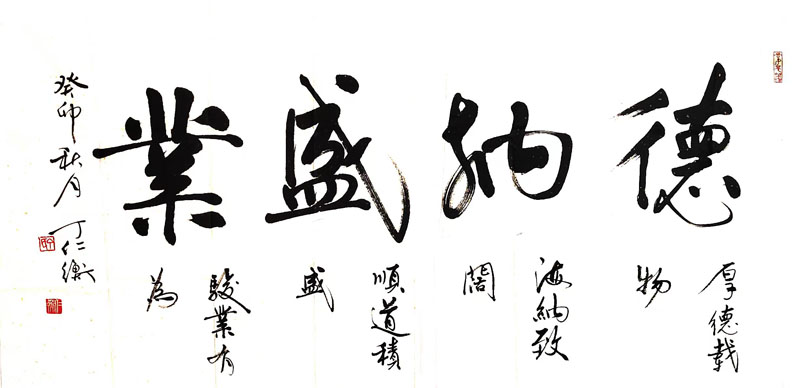 德納盛業
厚德載
物
海納致
闊
順道積
盛
駿業有
為
癸卯秋月
丁仁衡